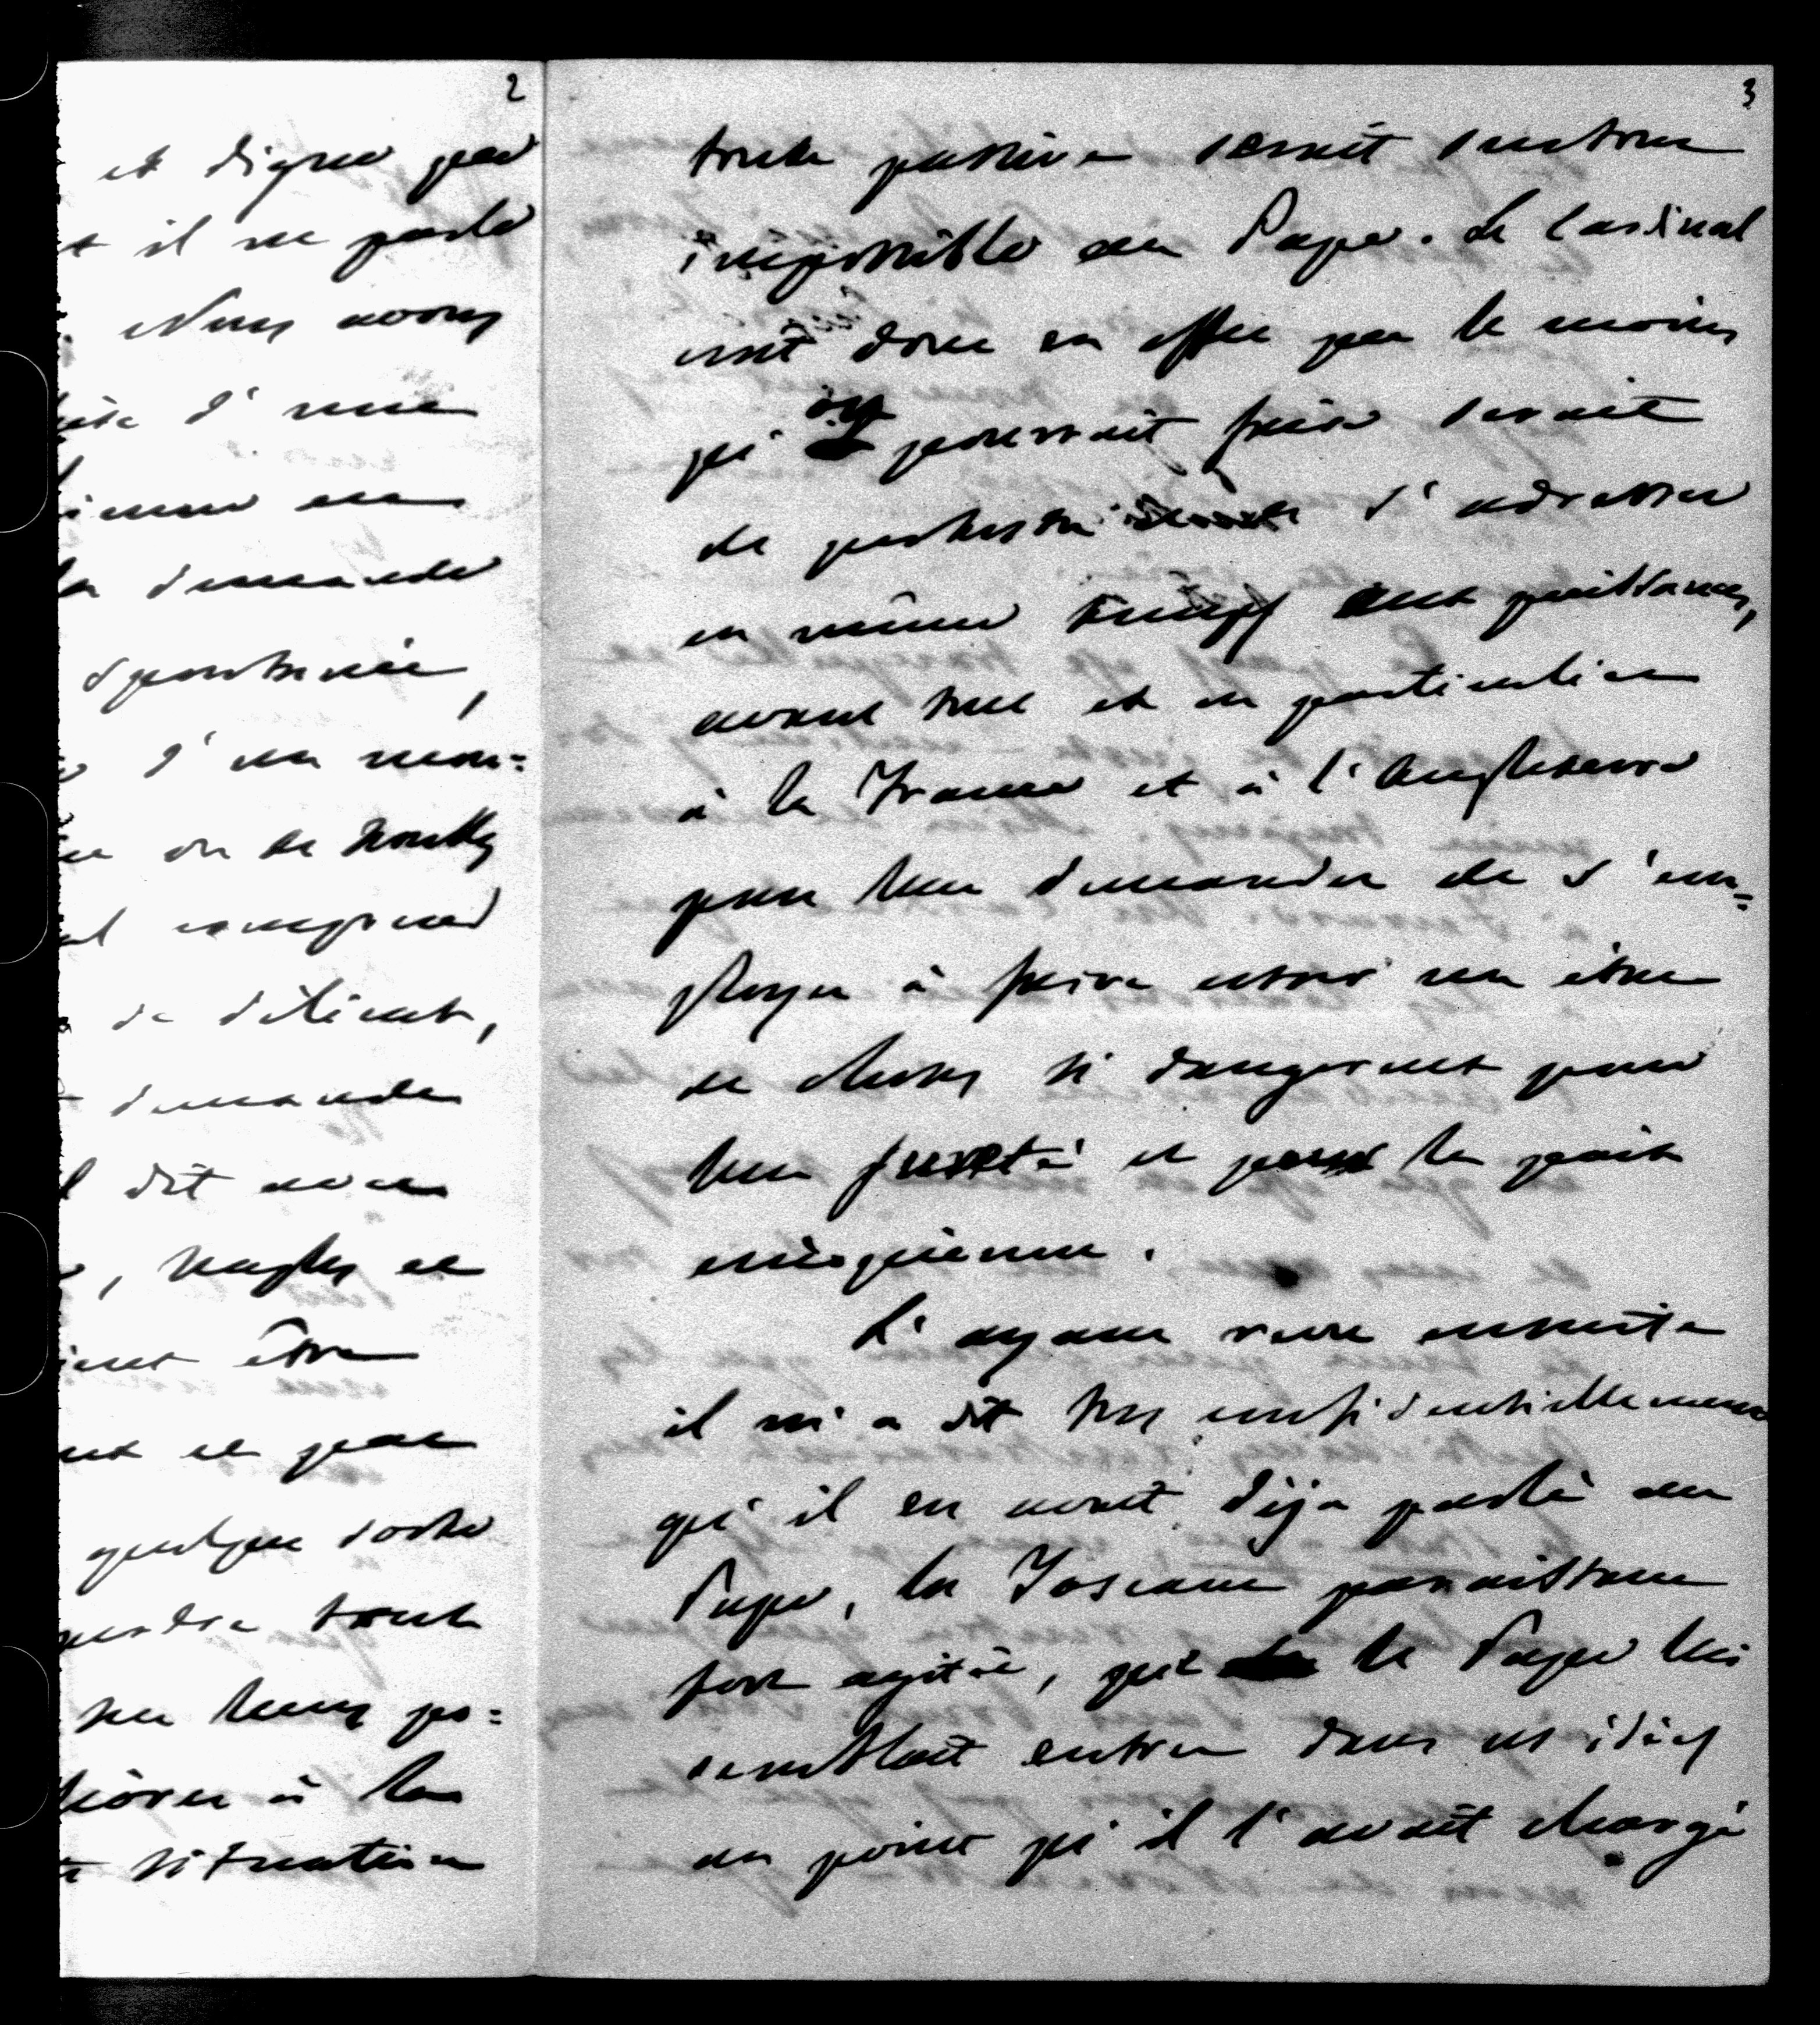 2
et digne par
et il me parle
Nous avons
d'une
la demande
spontanée,
d'un mou=
ou de nouvelles
comprend
de délicat,
demande
il dit avec
être
et par
quelque sorte
toute
sur leurs po=
à la
situation
3
toute passive serait surtout
impossible au Pape. Le Cardinal
croit donc en effet que le moins
qu'on pourrait faire serait
de protester d'adresser
en même temps aux puissances,
avant tout et en particulier
à la France et à l'Angleterre
pour leur demander de s'em=
ployer à faire cesser un état
de choses si dangereux pour
leur sureté et pour la paix
européenne.
L'ayant revu ensuite
il m'a dit très confidentiellement
qu'il en avait déjà parlé au
Pape, la Toscane paraissant
fort agitée, que le Pape lui
semblait entrer dans ces idées
au point qu'il l'avait chargé